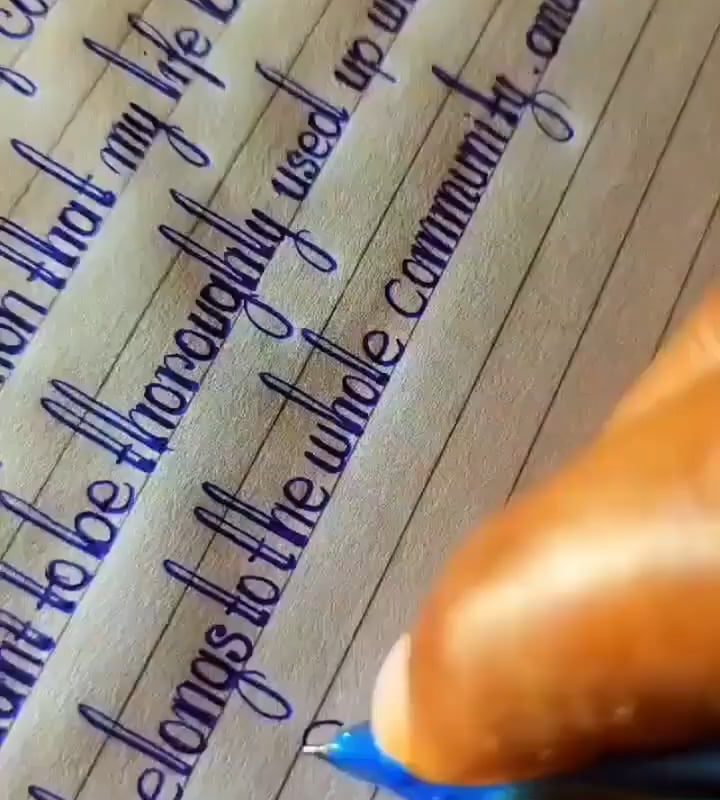 on that my life
ant to be thoroughly used up
elongs to the whole community. and